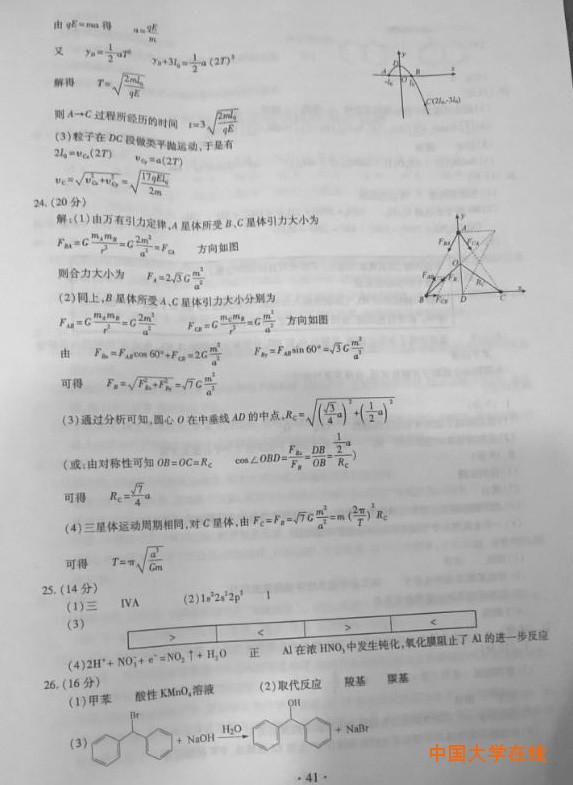 由 qE=ma 得 a=qE/m
又 y_D=1/2 aT² y_D+3l₀=1/2 a(2T)²
解得 T=√(2ml₀/qE)
则 A→C 过程所经历的时间 t=3√(2ml₀/qE)
(3)粒子在 DC 段做类平抛运动,于是有
2l₀=v_Cx(2T) v_Cy=a(2T)
v_C=√(v²_Cx+v²_Cy)=√(17qEl₀/2m)
y
D
A O B x
-l₀ l₀
C(2l₀,-3l₀)
24.(20 分)
解:(1)由万有引力定律,A 星体所受 B、C 星体引力大小为
F_BA=G m_Am_B/r²=G 2m²/a²=F_CA 方向如图
则合力大小为 F_A=2√3G m²/a²
(2)同上,B 星体所受 A、C 星体引力大小分别为
F_AB=G m_Am_B/r²=G 2m²/a² F_CB=G m_Cm_B/r²=G m²/a² 方向如图
由 F_Bx=F_ABcos 60°+F_CB=2G m²/a² F_By=F_ABsin 60°=√3G m²/a²
可得 F_B=√(F²_Bx+F²_By)=√7G m²/a²
y
A
F_BA F_CA
O
F_AB F_B R_C
B D C x
F_CB
(3)通过分析可知,圆心 O 在中垂线 AD 的中点,R_C=√((√3/4 a)²+(1/2 a)²)
(或:由对称性可知 OB=OC=R_C cos∠OBD=F_Bx/F_B=DB/OB=(1/2 a)/R_C)
可得 R_C=√7/4 a
(4)三星体运动周期相同,对 C 星体,由 F_C=F_B=√7G m²/a²=m(2π/T)²R_C
可得 T=π√(a³/Gm)
25.(14 分)
(1)三 ⅣA (2)1s²2s²2p³ 1
(3)
> < > <
(4)2H⁺+NO₃⁻+e⁻=NO₂↑+H₂O 正 Al 在浓 HNO₃中发生钝化,氧化膜阻止了 Al 的进一步反应
26.(16 分)
(1)甲苯 酸性 KMnO₄溶液 (2)取代反应 羧基 羰基
Br OH
(3) + NaOH H₂O + NaBr
中国大学在线
·41·